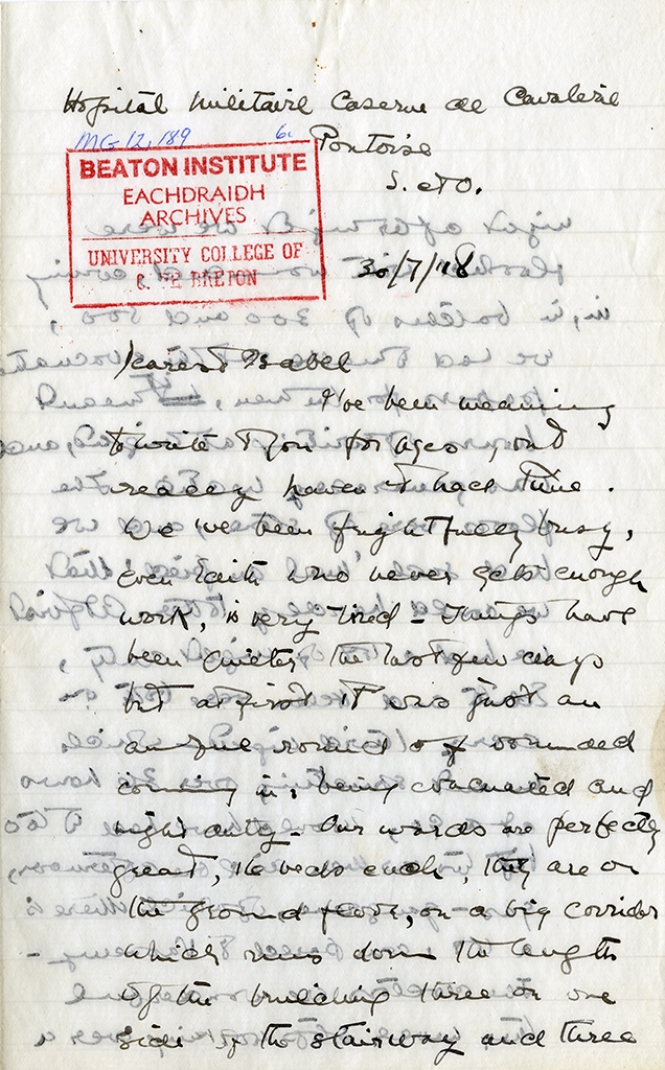 Hospital Militaire Caserne de Cavalerie
MG 12, 189 6.
Pontoise
S. et O.
BEATON INSTITUTE
EACHDRAIDH
ARCHIVES
UNIVERSITY COLLEGE OF
CAPE BRETON
30/7/18
Dearest Isabel
I've been meaning
to write to you for ages, and
really haven't had time.
We've been frightfully busy,
even Faith who never gets enough
work, is very tired - Things have
been quieter the last few days
but at first it was just an
awful round of wounded
coming in, being evacuated and
night duty - Our wards are perfectly
great, 16 beds each, they are on
the ground floor, on a big corridor
which runs down the length
of the building three on one
side of the stairway and three